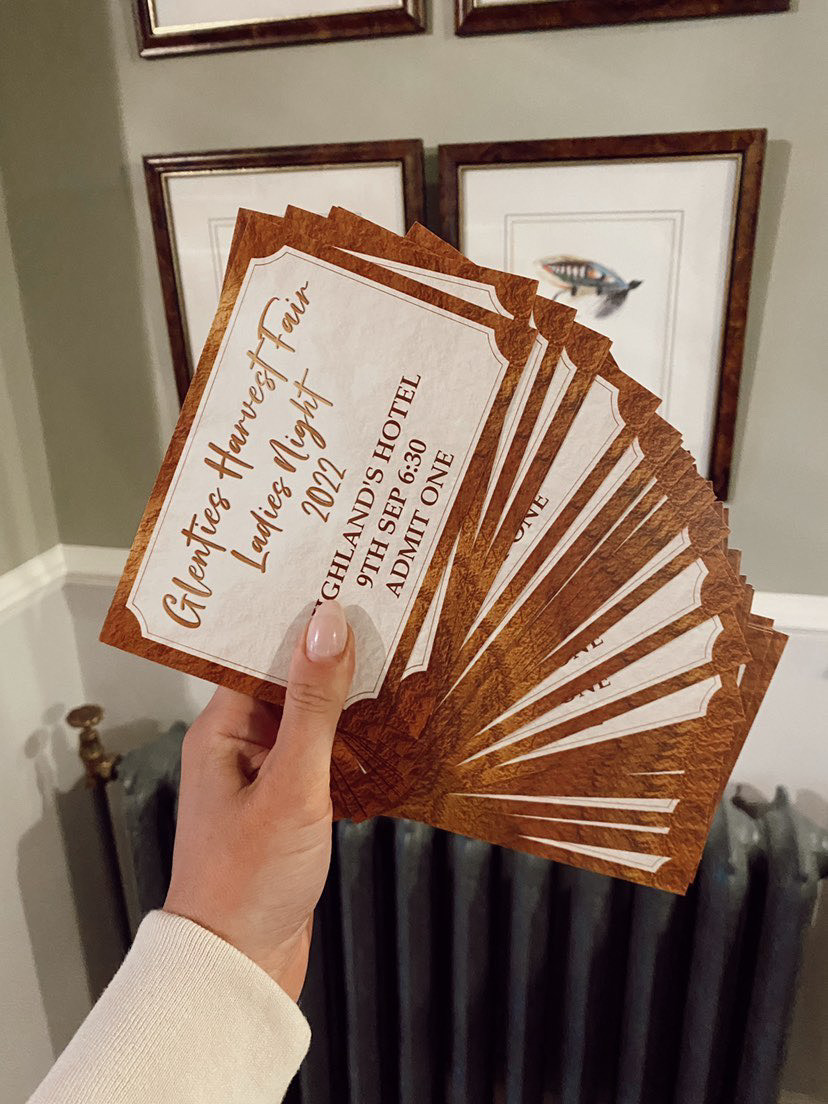 Glenties Harvest Fair
Ladies Night
2022
HIGHLAND'S HOTEL
9TH SEP 6:30
ADMIT ONE
ONE
ONE
ONE